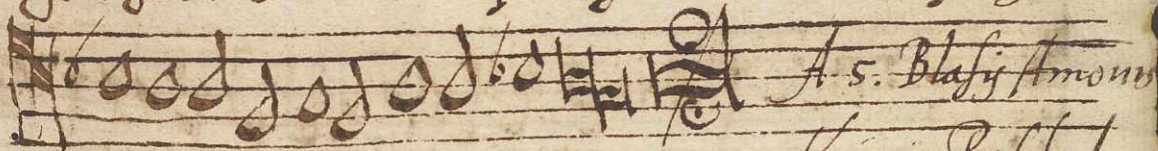 A 5. Blasij Amonis